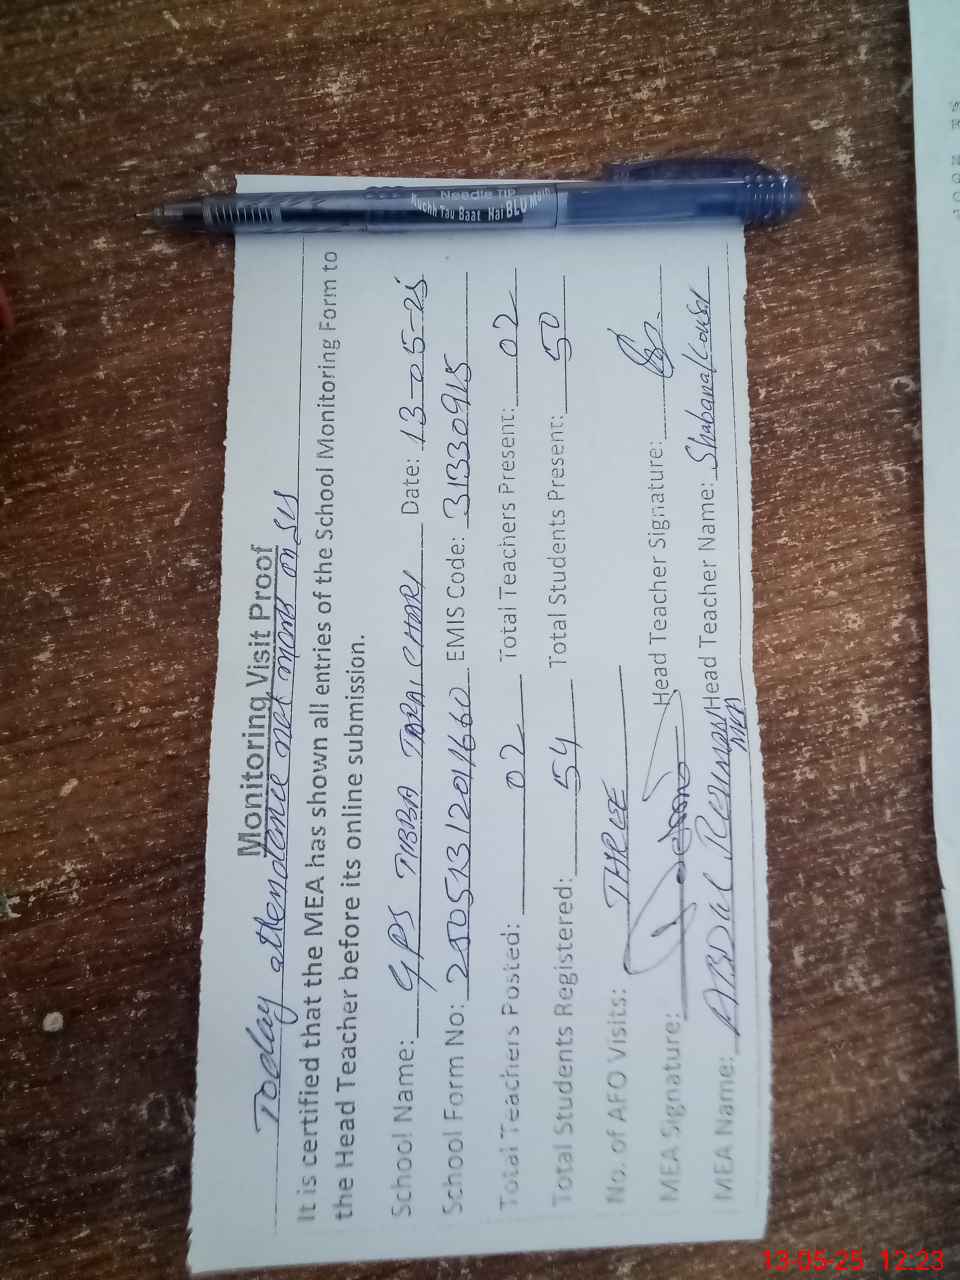 Monitoring Visit Proof
Today attendance not mark on SIS
It is certified that the MEA has shown all entries of the School Monitoring Form to
the Head Teacher before its online submission.
School Name: GPS TIBBA TARAI CHARI Date: 13-05-25
School Form No: 2505131201660 EMIS Code: 31330915
Total Teachers Posted: 02 Total Teachers Present: 02
Total Students Registered: 54 Total Students Present: 50
No. of AFO Visits: THREE
MEA Signature: Head Teacher Signature:
MEA Name: ABDUL REHMAN Head Teacher Name: Shabana Kousar
Needle TIP
Kuchh Tau Baat Hai BLU Mein
13-05-25 12:23